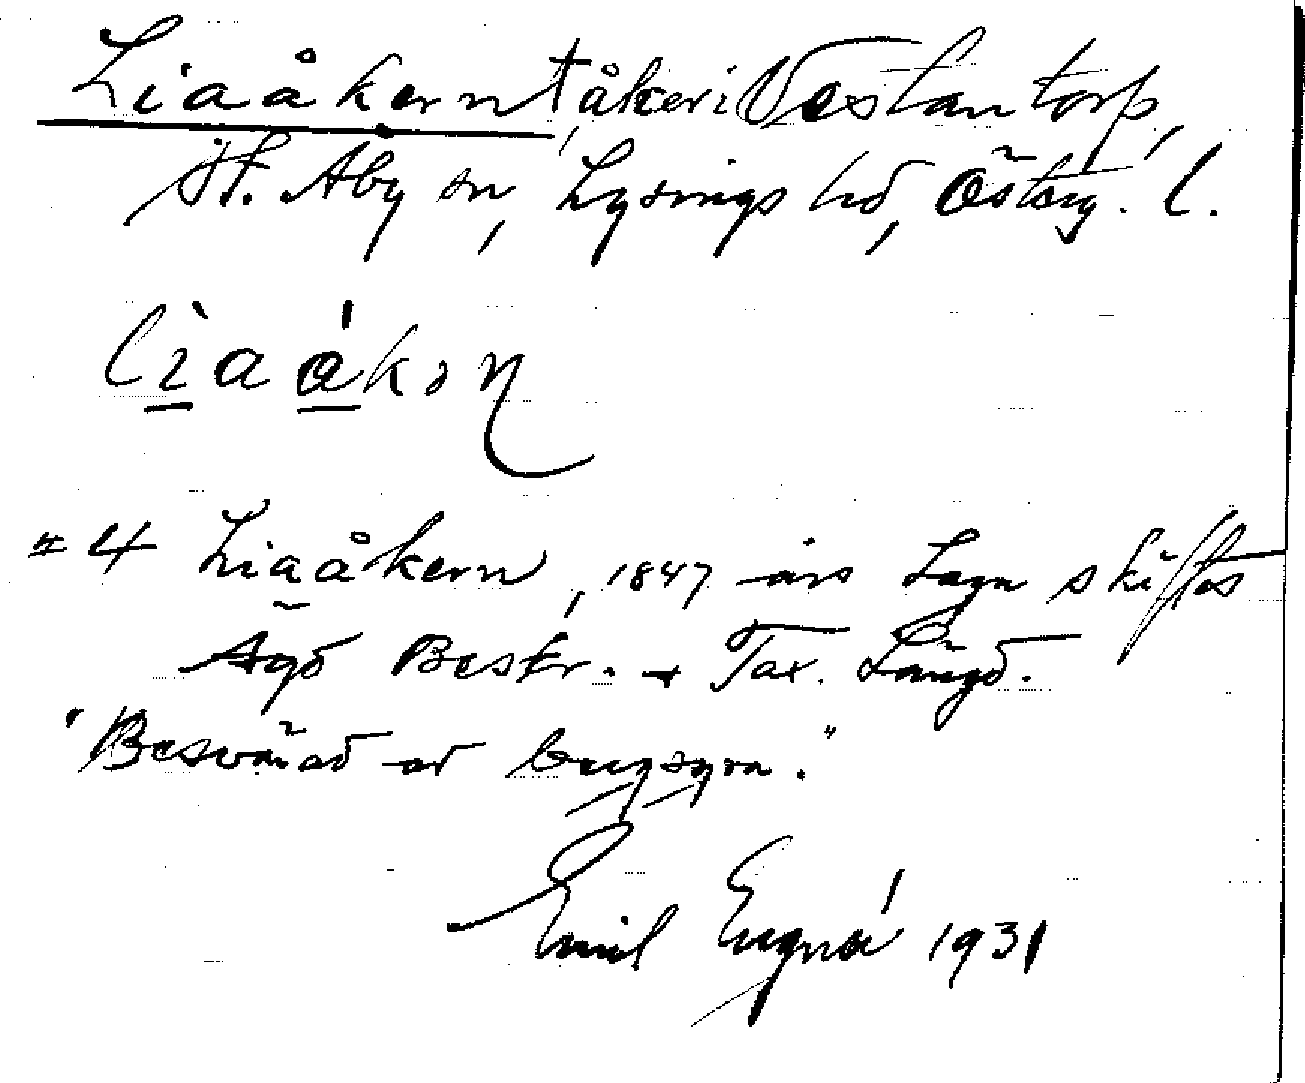 Liaåkern †, åker i Vestantorp,
St. Åby sn, Lysings hd, Österg. l.
lìaákən
# 4 Liaåkern, 1847 års Laga skiftes
Ägo Beskr. + Tax. Längd.
"Besvärad av bergsyra."
Emil 1931